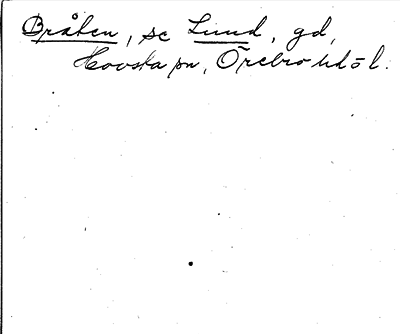 Bråten, se Lund, gd,
Hovsta sn, Örebro hd o l.